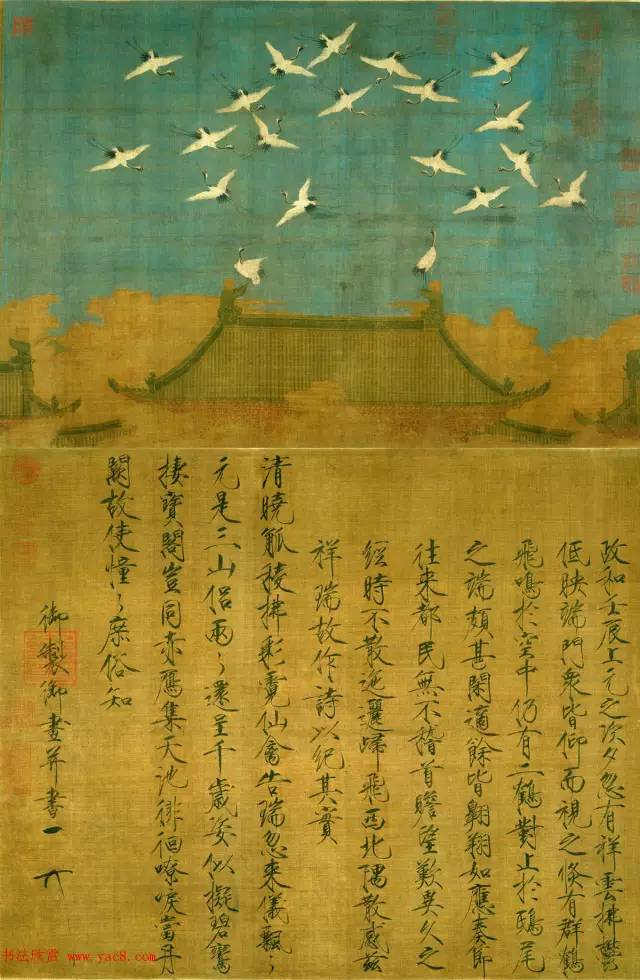 政和壬辰上元之次夕忽有祥雲拂鬱
低映端門衆皆仰而視之倏有群鶴
飛鳴於空中仍有二鶴對止於鴟尾
之端頗甚閑適餘皆翱翔如應奏節
往来都民無不稽首瞻望歎異久之
經時不散迤邐歸飛西北隅散感茲
祥瑞故作詩以紀其實
清曉觚稜拂彩霓仙禽告瑞忽来儀飄〻
元是三山侶兩〻還呈千歲姿似擬碧鸞
棲寶閣豈同赤鴈集天池徘徊嘹唳當丹
闕故使憧〻庶俗知
御製御畫并書
书法欣赏 www.yac8.com